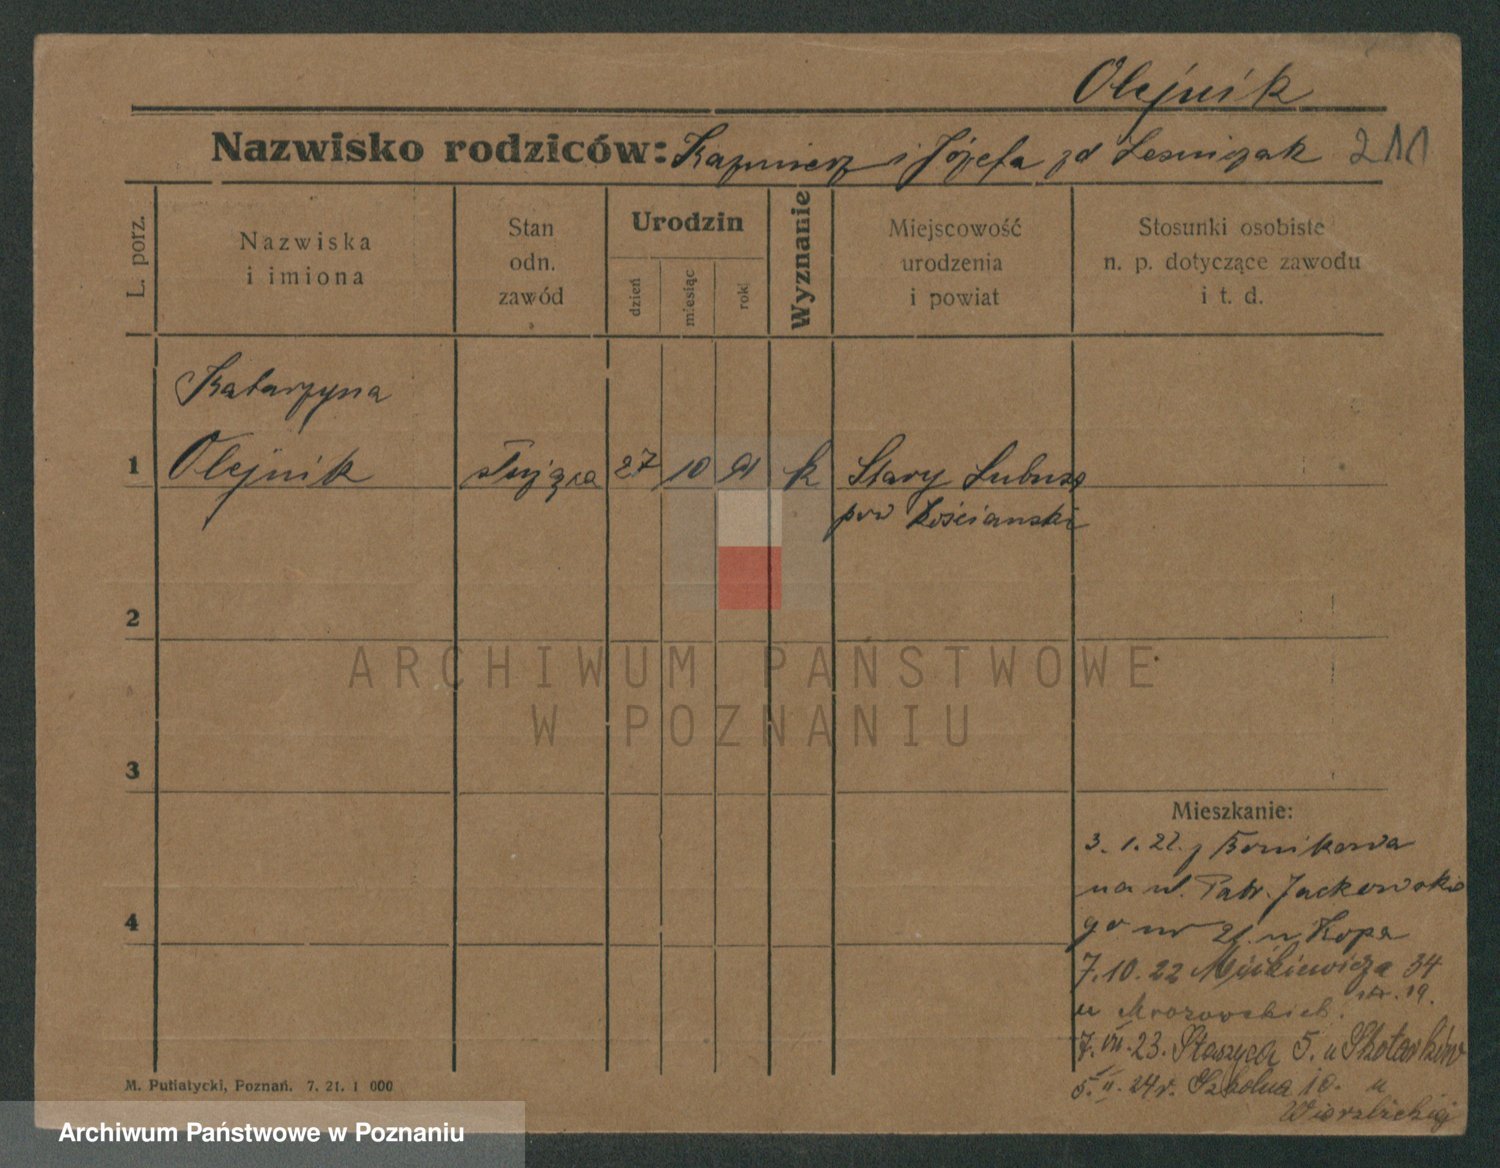 Olejnik
Nazwisko rodziców: Kazmierz i Józefa zd Leśniczak 211
L. porz.
Nazwiska
i imiona
Stan
odn.
zawód
Urodzin
dzień
miesiąc
rok
Wyznanie
Miejscowość
urodzenia
i powiat
Stosunki osobiste
n. p. dotyczące zawodu
i t. d.
Katarzyna
1 Olejnik służąca 27 10 k Stary Lubusz
pow Kościanski
2
ARCHIWUM PAŃSTWOWE
W POZNANIU
3
Mieszkanie:
3. 1. 22. z Bonikowa
na ul. Patr. Jackowskie
go nr 21. u Kopa
4
7.10.22 Mickiewicza 34
u Mrozowskich.
7. VII. 23. Staszyca 5. u
5. II. 24r. Szkolna 10. u
M. Putiatycki, Poznań. 7. 21. 1 000
Archiwum Państwowe w Poznaniu